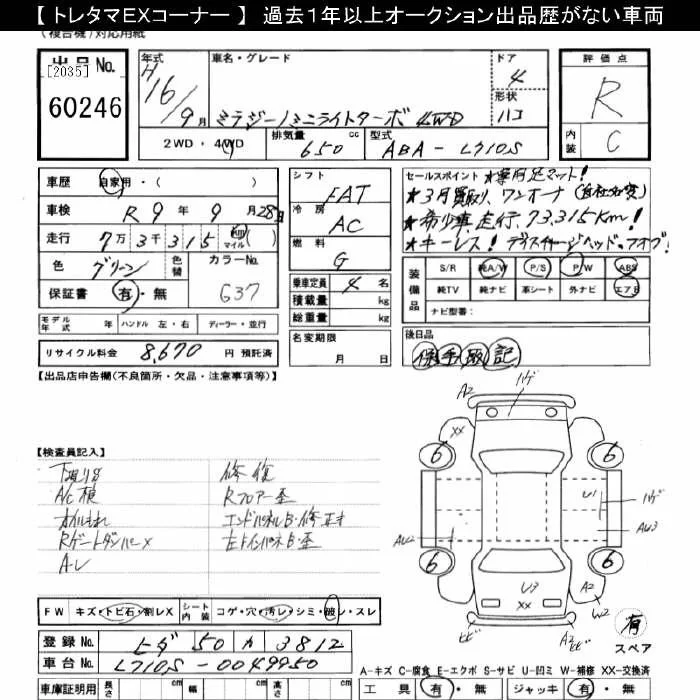 【 トレタマEXコーナー 】 過去1年以上オークション出品歴がない車両
(複合機)対応用紙
出品No.
[2035]
60246
年式 H16/9月
車名・グレード
ミラジーノミニライトターボ 4WD
ドア 4
形状 ハコ
2WD・4WD
排気量 650 cc
型式 ABA-L710S
評価点 R
内装 C
車歴 自家用・( )
車検 R9年9月28日
走行 7万3千315 km マイル ( )
色 グリーン 色替
カラーNo. G37
保証書 有・無
シフト FAT
冷房 AC
燃料 G
乗車定員 4 名
積載量 kg
総重量 kg
名変期限 月 日
セールスポイント
★3月買取り、ワンオーナ
★希少車 走行73,315Km!
★キーレス!
装備品
S/R 純A/W P/S P/W ABS
純TV 純ナビ 革シート 外ナビ エアB
ナビ型番:
後日品
保 手 取 記
モデル年式 年 ハンドル 左・右 ディーラー・並行
リサイクル料金 8,670 円 預託済
【出品店申告欄(不良箇所・欠品・注意事項等)】
【検査員記入】
下廻りS 修復
A/C検 Rフロアー歪
オイルもれ エンドパネルB・修正才
RゲートダンパーX
A-レ
FW キズ・トビ石・割レX シート内装 コゲ・穴・汚レ・シミ・破レ・スレ
登録No. ヒダ 50 カ 3812
車台No. L710S-0049950
車庫証明用 長さ cm 幅 cm 高さ cm
A2
ハゲ
XX
6
6
U1
ハゲ
AU2
AU3
6
6
U3
XX
A2
W2
ヒビ
A2
ヒビ
有
スペア
A-キズ C-腐食 E-エクボ S-サビ U-凹ミ W-補修 XX-交換済
工具 有・無 ジャッキ 有・無